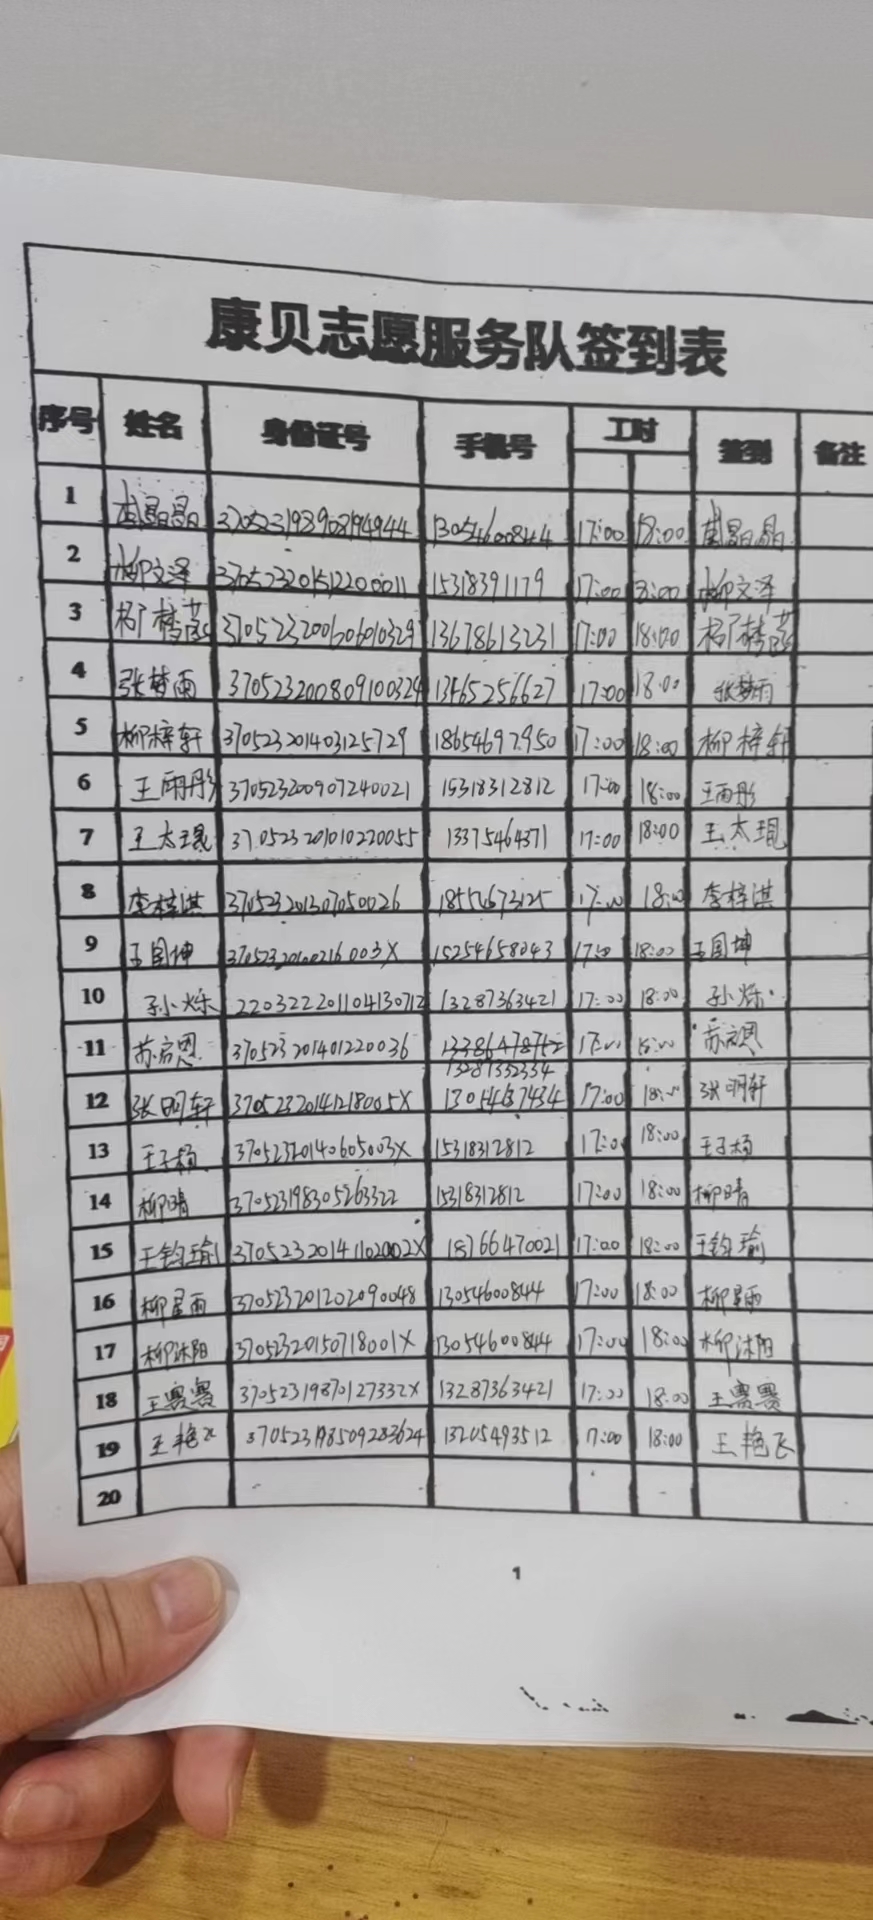 康贝志愿服务队签到表
序号 姓名 身份证号 手机号 工时 签到 备注
1 晶晶 370523198908194944 13054600844 17:00 18:00 晶晶
2 柳文泽 370523201512200011 15318391179 17:00 8:00 柳文泽
3 梦 370523200606010329 13678613231 17:00 18:00 梦
4 张梦雨 370523200809100324 13465256627 17:00 18:00 张梦雨
5 柳梓轩 370523201403125729 18654697950 17:00 18:00 柳梓轩
6 王雨彤 370523200907240021 15318312812 17:00 18:00 王雨彤
7 王太琨 370523201010220055 13375464371 17:00 18:00 王太琨
8 李梓淇 370523201307050026 17:00 18:00 李梓淇
9 王国坤 15254658043 18:00 王国坤
10 孙烁 220322201104130712 13287363421 17:00 18:00 孙烁
11 苏启恩 370523201401220036 13287352334 17:00 苏启恩
12 张明轩 37052320141218005X 17:00 张明轩
13 王子杨 37052320140605003X 15318312812 17:00 18:00 王子杨
14 柳晴 370523198305263322 15318312812 17:00 18:00 柳晴
15 王钧瑜 37052320141102002X 18766470021 17:00 18:00 王钧瑜
16 柳星雨 370523201202090048 13054600844 17:00 18:00 柳星雨
17 柳沐阳 37052320150718001X 13054600844 17:00 18:00 柳沐阳
18 王赛赛 37052319870127332X 13287363421 17:00 18:00 王赛赛
19 王艳飞 370523198509283624 17:00 18:00 王艳飞
20
1